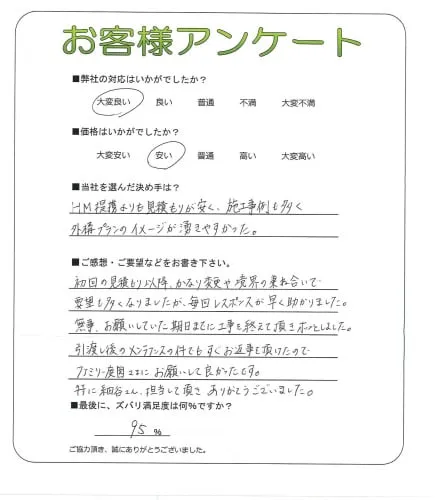 お客様アンケート
■弊社の対応はいかがでしたか？
大変良い 良い 普通 不満 大変不満
■価格はいかがでしたか？
大変安い 安い 普通 高い 大変高い
■当社を選んだ決め手は？
HM提携よりも見積もりが安く、施工事例も多く
外構プランのイメージが湧きやすかった。
■ご感想・ご要望などをお書き下さい。
初回の見積もり以降、かなり変更や境界の兼ね合いで
要望も多くなりましたが、毎回レスポンスが早く助かりました。
無事、お願いしていた期日までに工事を終えて頂きホッとしました。
引渡し後のメンテナンスの件でもすぐお返事を頂けたので
ファミリー庭園さまにお願いして良かったです。
特に細谷さん、担当して頂きありがとうございました。
■最後に、ズバリ満足度は何％ですか？
95 %
ご協力頂き、誠にありがとうございました。